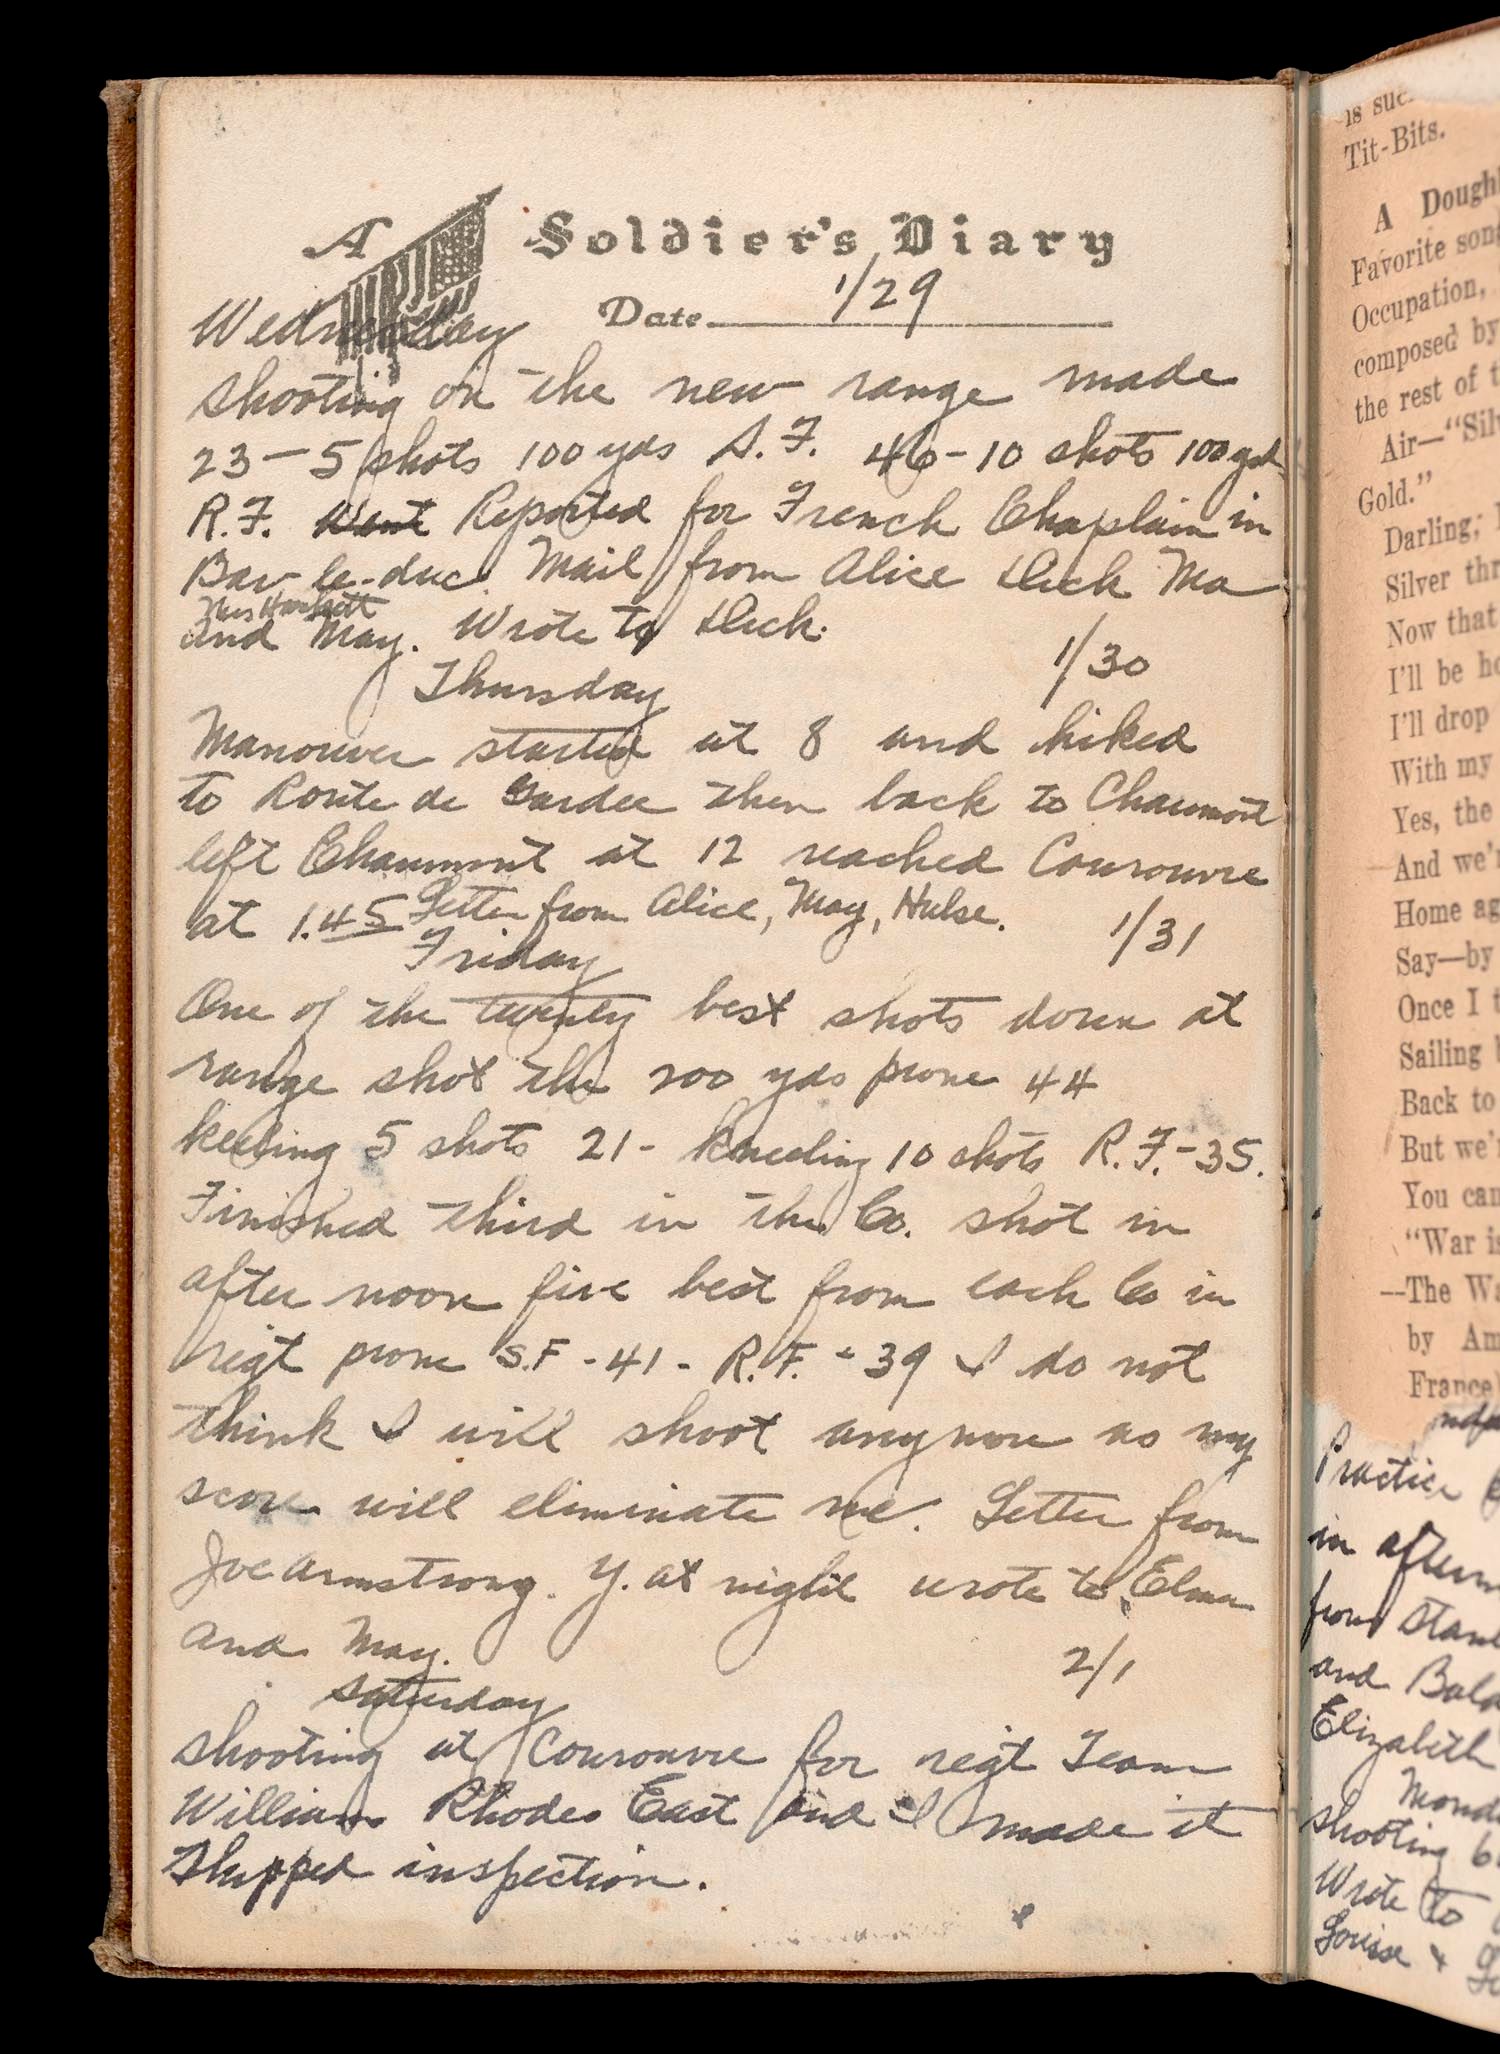 A Soldier's Diary
Date 1/29
Wednesday
shooting on the new range made
23 - 5 shots 100 yds S.F. 46 - 10 shots 100 yds
R.F. Went Reported for French Chaplain in
Bar-le-duc. Mail from Alice Dick Ma
Mrs Hackett
and May. Wrote to Dick.
1/30
Thursday
Manouver started at 8 and hiked
to Route de then back to Chaumont
left Chaumont at 12 reached Courouvre
at 1.45 Letter from Alice, May, Hulse.
1/31
Friday
One of the twenty best shots down at
range shot the 200 yds prone 44
keeling 5 shots 21 - kneeling 10 shots R.F. - 35.
Finished third in the Co. shot in
after noon five best from each Co in
regt prone S.F - 41 - R.F. - 39 I do not
think I will shoot anymore as my
score will eliminate me. Letter from
Joe Armstrong. Y. at night wrote to Elma
and May.
2/1
Saturday
shooting at Courouvre for regt Team
William Rhodes East and I made it
inspection.
is
Tit-Bits.
A
Favorite
Occupation,
composed by
the rest of
Air—
Gold."
Darling,
Silver
Now that
I'll be
I'll drop
With my
Yes, the
And
Home
Say—by
Once I
Sailing
Back to
But
You
"War
—The
by
France
Practice
in
from
and
Elizabeth
shooting
Wrote to
Louise &